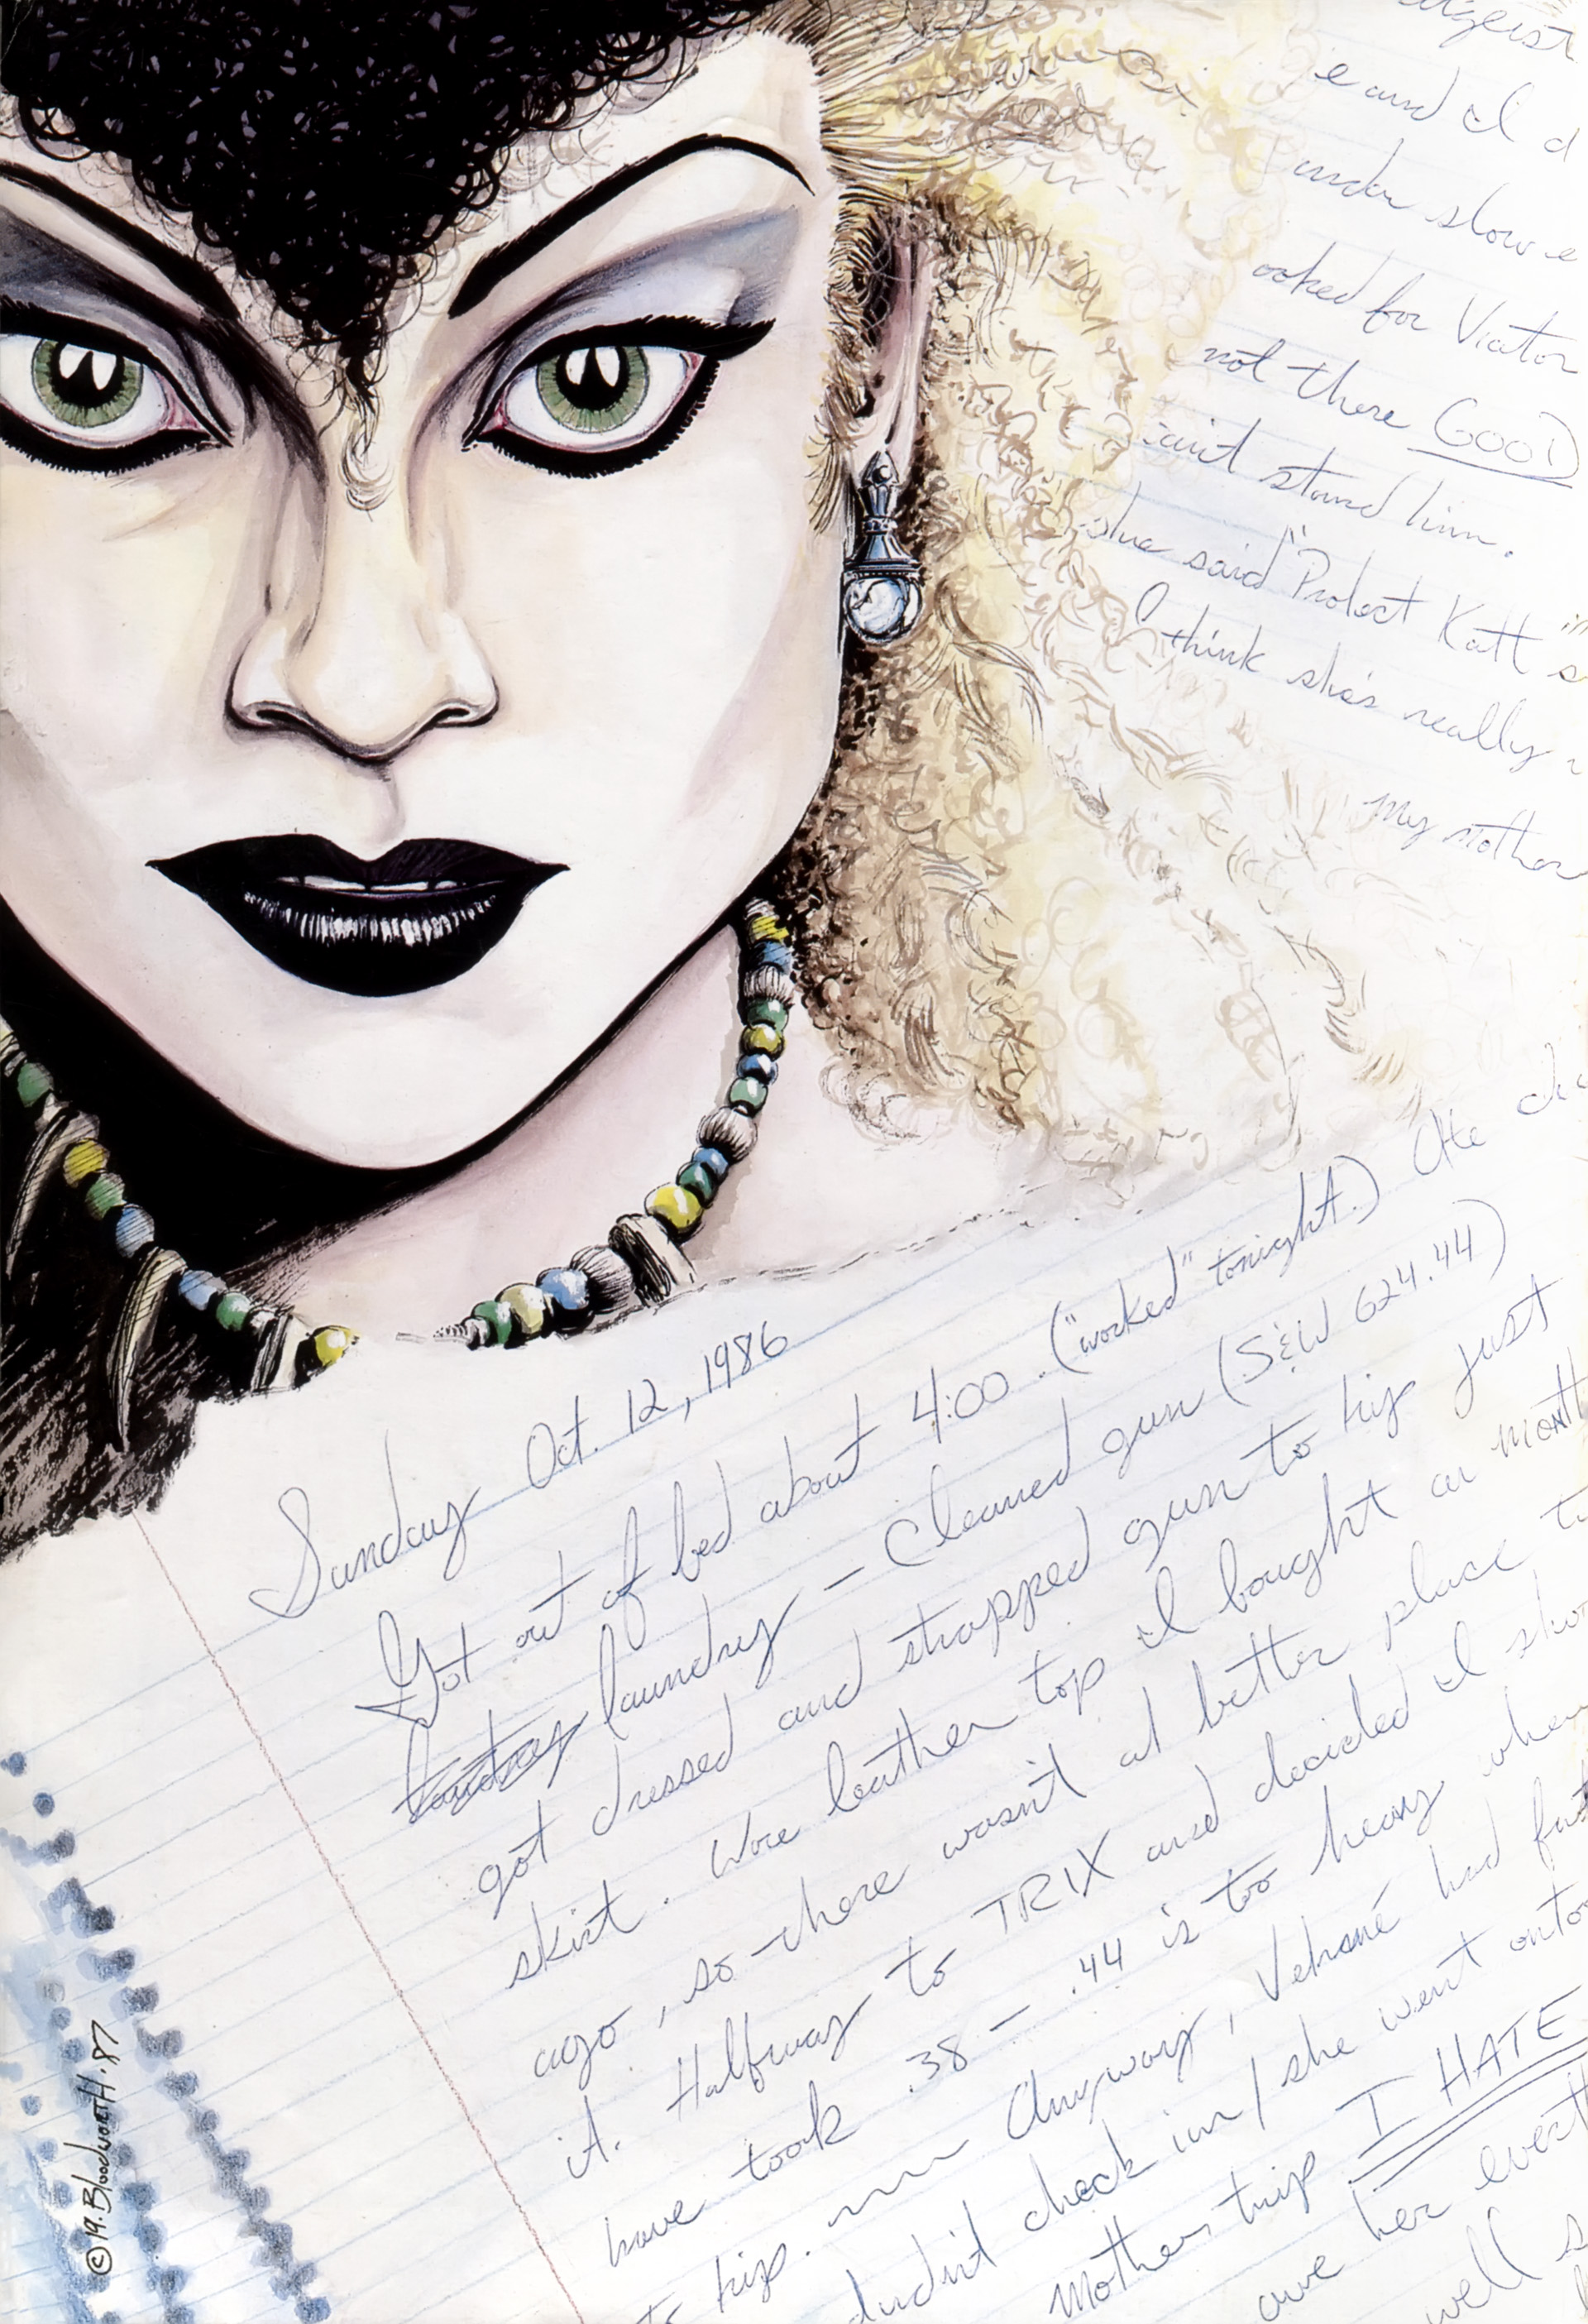 e and I d
under slow e
ooked for Viator
not there GOOD
can't stand him.
she said "Protect Katt"
I think she's really
my mother
Sunday Oct. 12, 1986
Got out of bed about 4:00. ("worked" tonight.)
laundry — Cleaned gun (S&W 624 .44)
got dressed and strapped gun to hip just
skirt. Wore leather top I bought a month
ago, so there wasn't a better place to
it. Halfway to TRIX and decided I shou
have took .38 — .44 is too heavy when
to hip. Anyway, had
didn't check in / she went onto
Mothers trip I HATE
owe her everth
well s
© 19. Bloodworth. 87